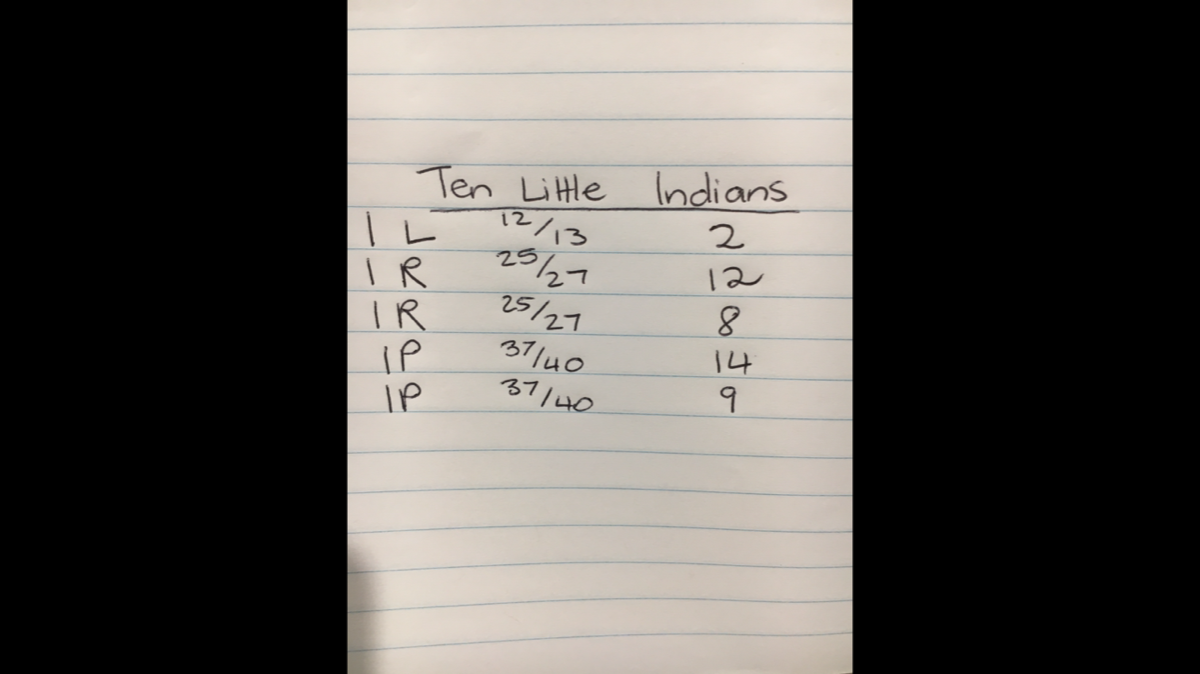 Ten Little Indians
1 L 12/13 2
1 R 25/27 12
1 R 25/27 8
1P 37/40 14
1P 37/40 9